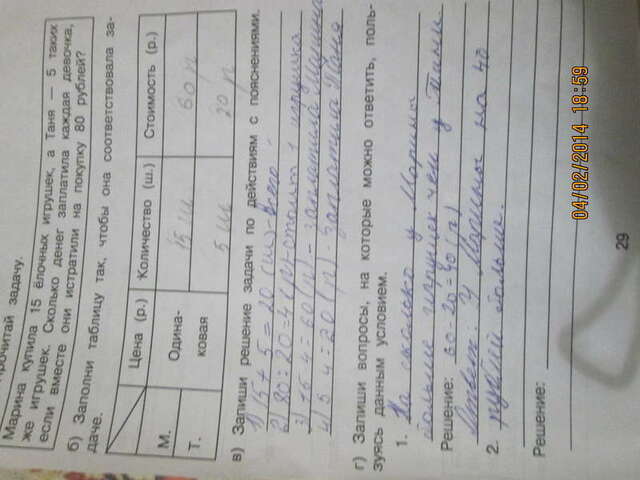 Прочитай задачу.
Марина купила 15 ёлочных игрушек, а Таня — 5 таких
же игрушек. Сколько денег заплатила каждая девочка,
если вместе они истратили на покупку 80 рублей?
б) Заполни таблицу так, чтобы она соответствовала за-
даче.
Цена (р.) Количество (ш.) Стоимость (р.)
М. Одина- 15 ш 60 р
Т. ковая 5 ш 20 р
в) Запиши решение задачи по действиям с пояснениями.
1) 15 + 5 = 20 (иг) - всего
2) 80 : 20 = 4 (р) - стоит 1 игрушка
3) 15 · 4 = 60 (р) - заплатила Марина
4) 5 · 4 = 20 (р) - заплатила Таня
г) Запиши вопросы, на которые можно ответить, поль-
зуясь данным условием.
1. На сколько у Марины
больше игрушек чем у Тани
Решение: 60 - 20 = 40 (р)
Ответ: У Марины на 40
2. рублей больше.
Решение:
29
04/02/2014 18:59